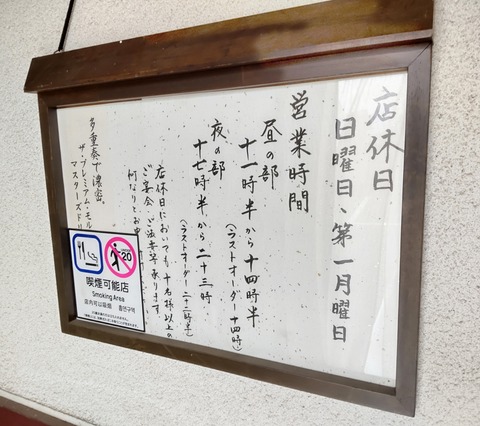 店休日
日曜日、第一月曜日
営業時間
昼の部
十一時半から十四時半
(ラストオーダー十四時)
夜の部
十七時半から二十三時
(ラストオーダー二十二時半)
店休日においても、十名様以上の
ご宴会・ご法要等承ります。
何なりとお申
多重奏で濃密。
ザ・プレミアム・モル
マスターズドリ
20
喫煙可能店
Smoking Area
店内可以吸烟
흡연구역